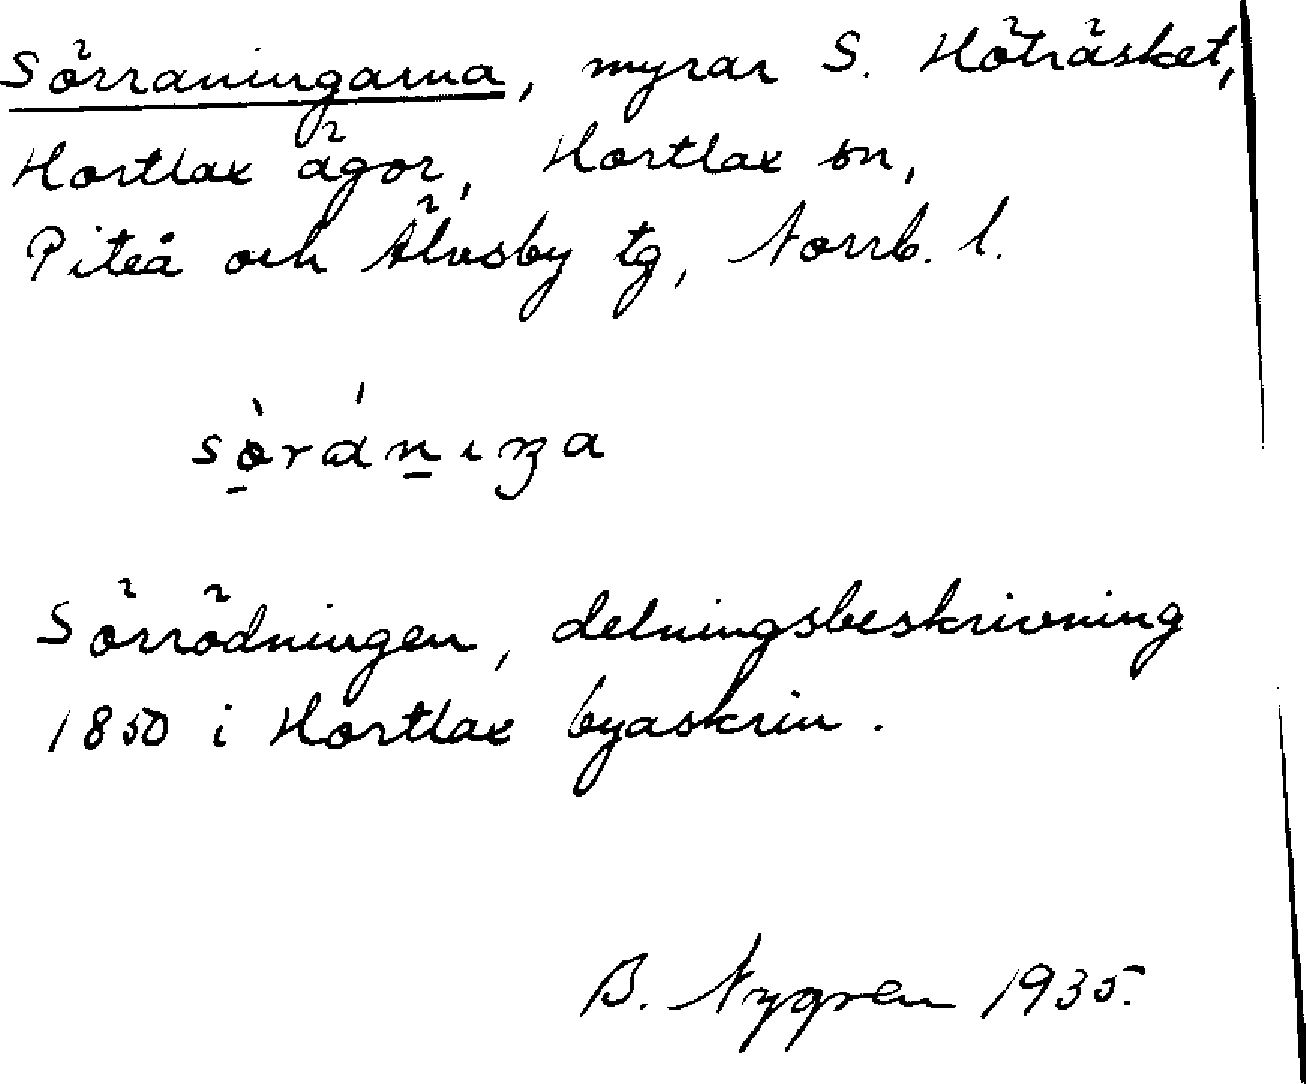 Sörraningarna, myrar S. Höträsket,
Hortlax ägor, Hortlax sn,
Piteå och Älvsby tg, Norrb. l.
Sörrödningen, delningsbeskrivning
1850 i Hortlax byaskrin.
B. Nygren 1935.